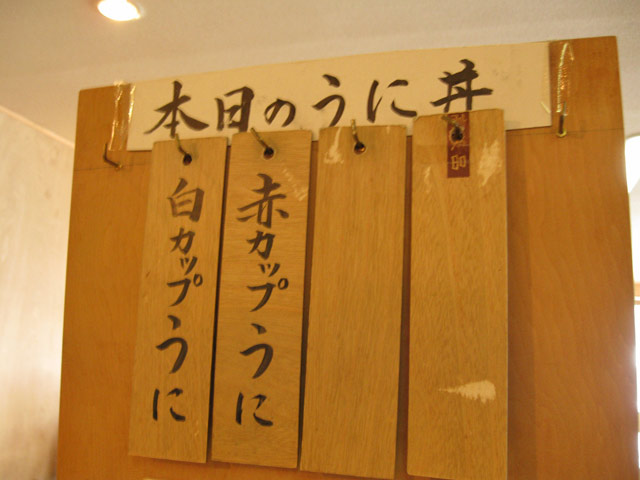 本日のうに丼
白カップうに
赤カップうに